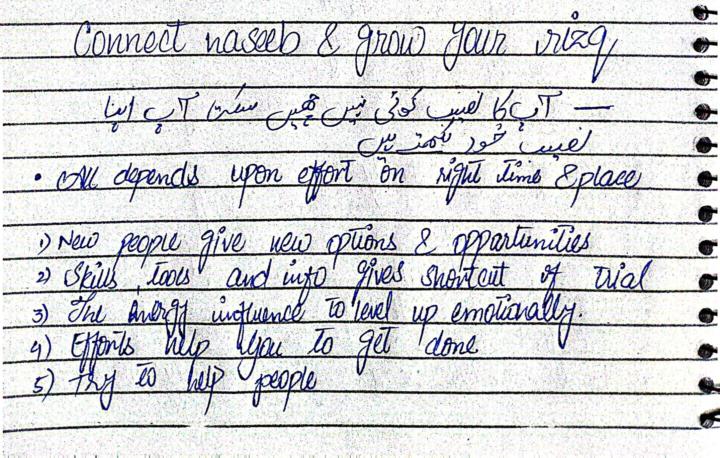 Connect naseeb & grow your rizq
— آپ کا نصیب کوئی نہیں چھین سکتا آپ اپنا
نصیب خود لکھتے ہیں
• All depends upon effort on right time & place
1) New people give new options & oppartunities
2) Skills, tools and info gives shortcut of trial
3) The energy influence to level up emotionally.
4) Efforts help you to get done
5) Try to help people